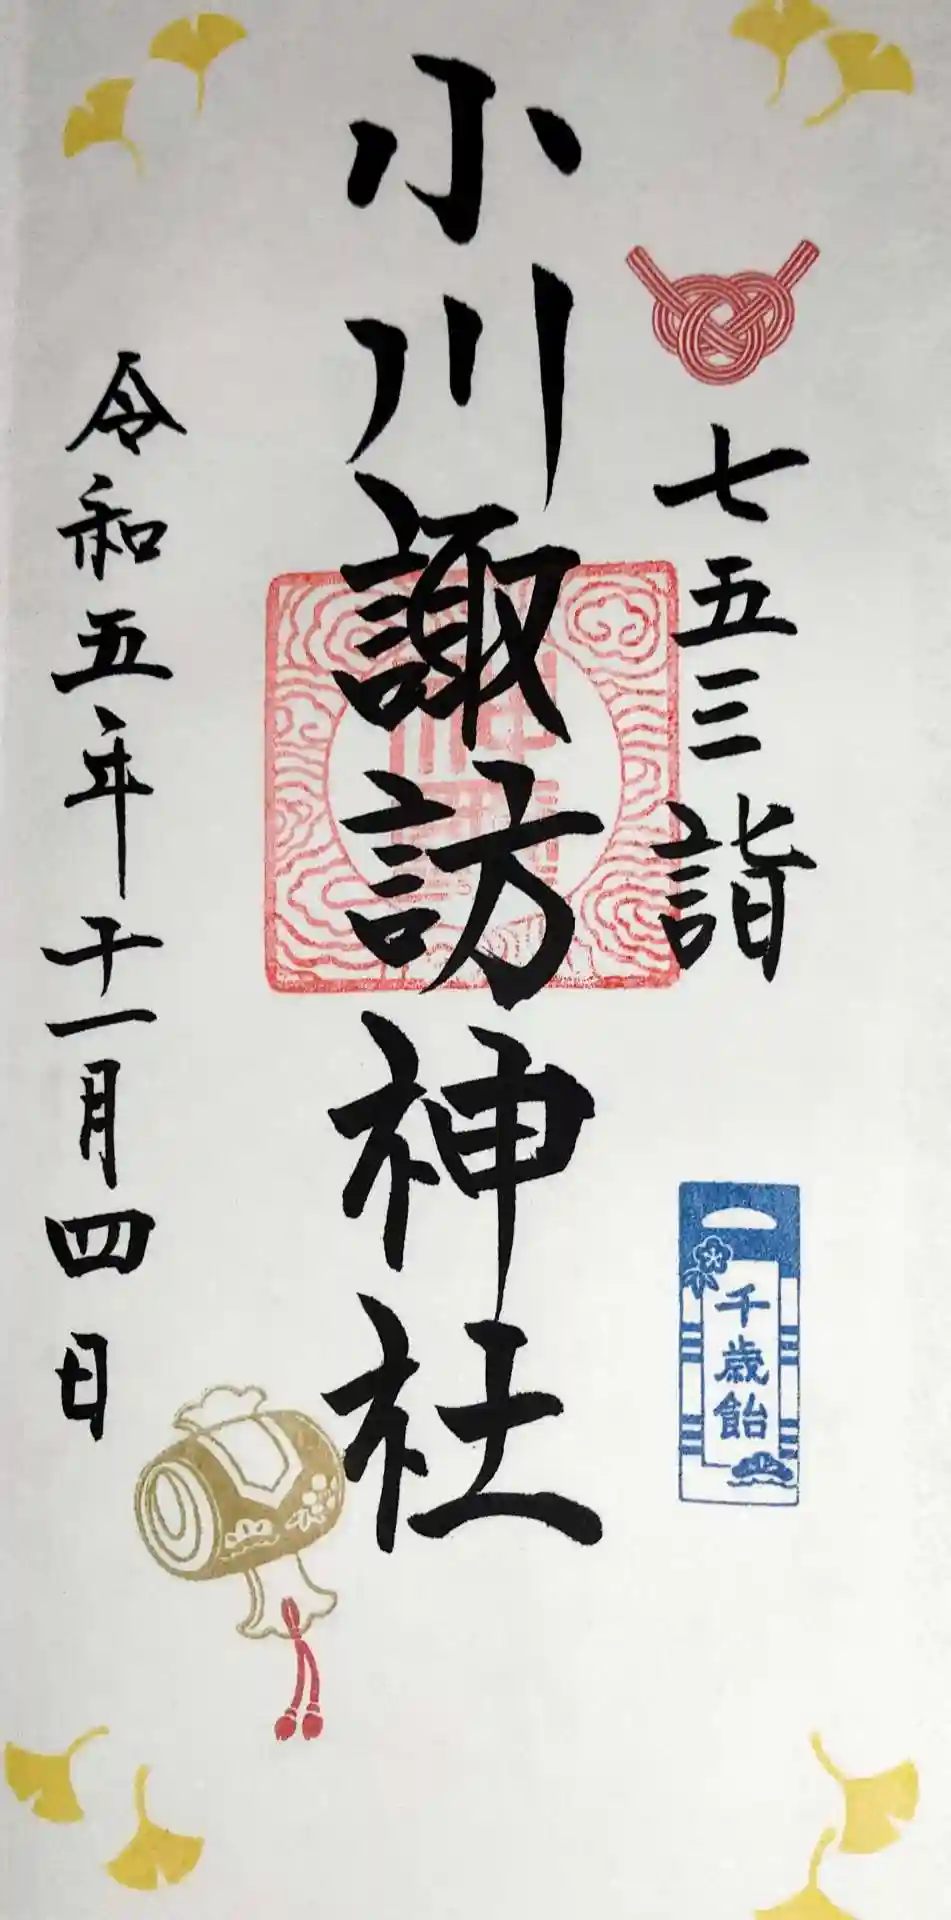 七五三詣
千歳飴
小川諏訪神社
令和五年十一月四日